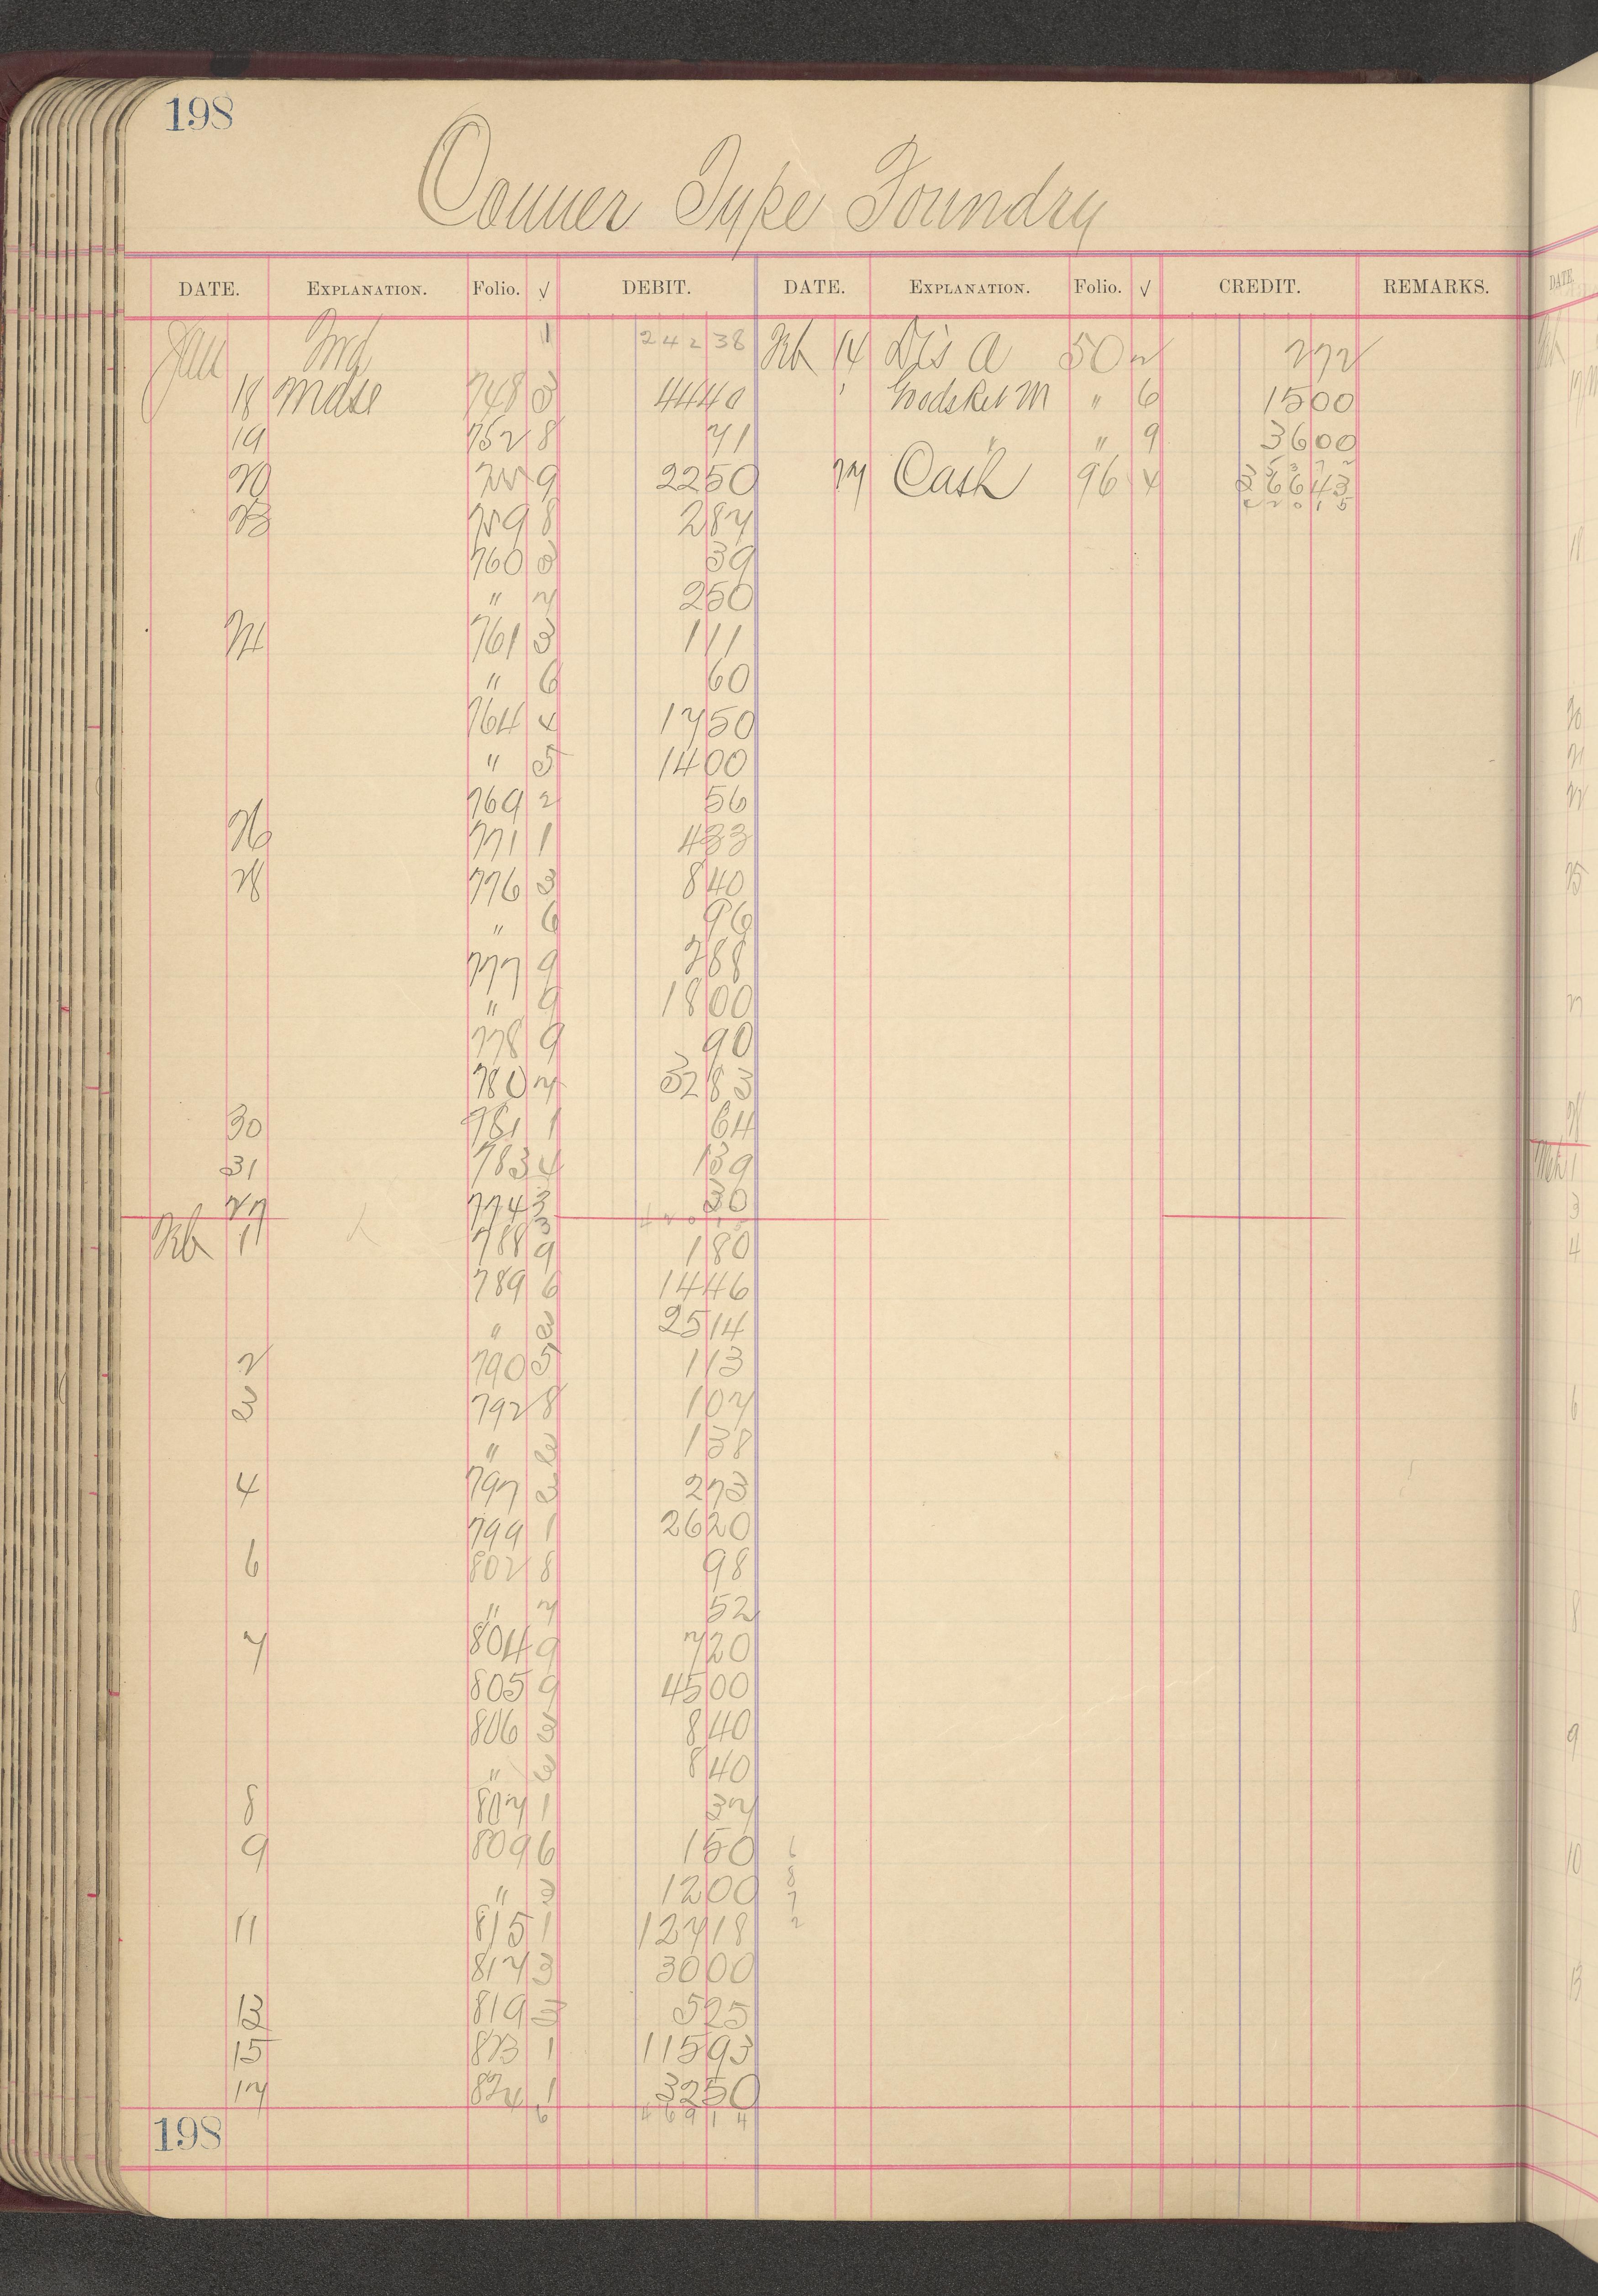 198
Conner Type Foundry
DATE. EXPLANATION. Folio. √ DEBIT. DATE. EXPLANATION. Folio. √ CREDIT. REMARKS.
Jan 1 242 38 Feb 14 Dis A 50 2 272
18 Mdse 748 3 4440 " 6 1500
19 752 8 71 " " 9 3600
20 9 2250 27 Cash 96 4 36643
23 759 8 287
760 3 39
" 7 250
24 761 3 111
" 6 60
764 4 1750
" 5 1400
769 2 56
26 771 1 433
28 776 3 840
" 6 96
777 9 288
" 9 1800
778 9 90
780 7 3283
30 781 1 64
31 783 4 139
27 774 3 30
Feb 1 788 9 180
789 6 1446
" 3 2514
2 790 5 113
3 792 8 107
" 138
4 797 3 273
799 1 2620
6 802 8 98
" 7 52
7 804 9 720
805 9 4500
806 3 840
" 3 840
8 807 1 37
9 809 6 150 6
" 3 1200 8 7
11 815 1 12718 2
817 3 3000
13 819 3 525
15 823 1 11593
17 824 1 3250
6 46914
198